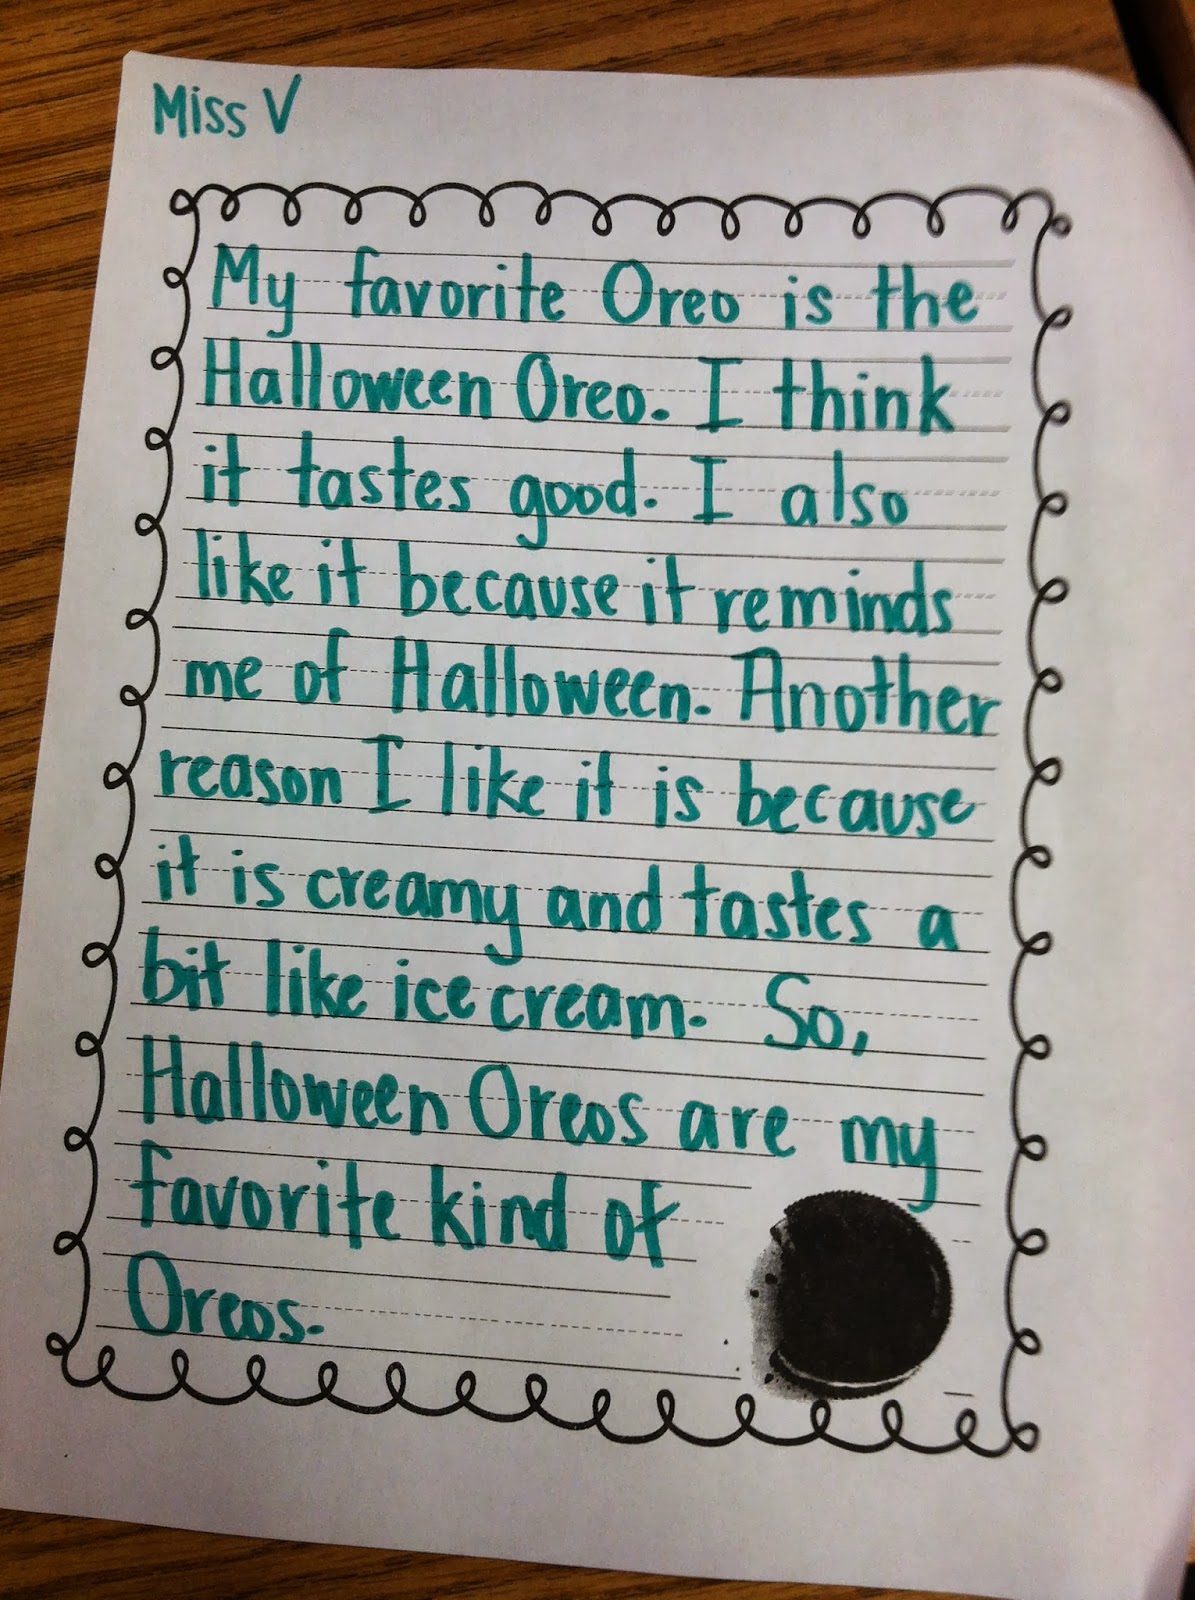 Miss V
My favorite Oreo is the
Halloween Oreo. I think
it tastes good. I also
like it because it reminds
me of Halloween. Another
reason I like it is because
it is creamy and tastes a
bit like ice cream. So,
Halloween Oreos are my
favorite kind of
Oreos.